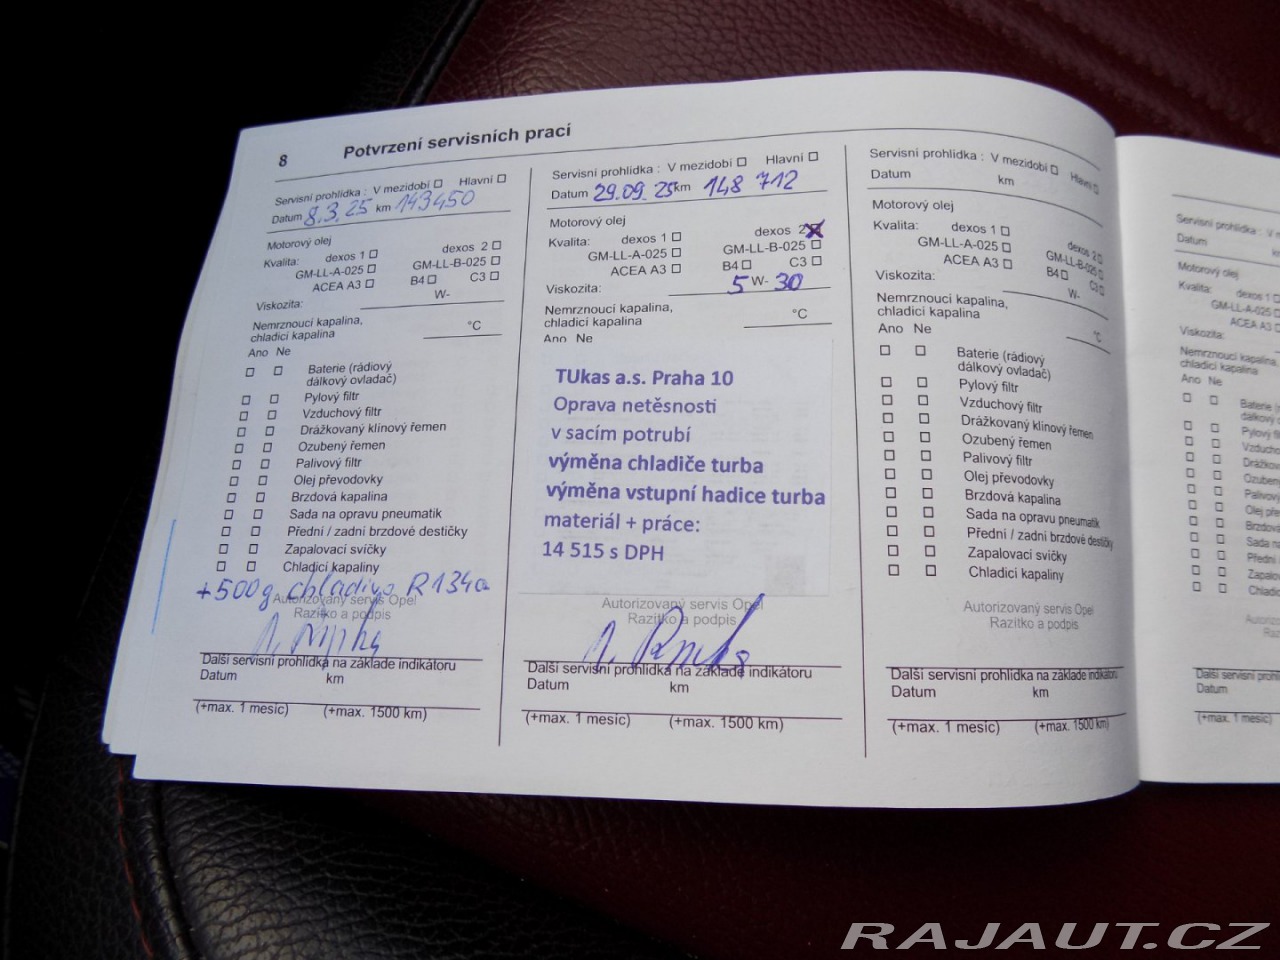 8 Potvrzení servisních prací
Servisní prohlídka : V mezidobí Hlavní
Datum 8.3.25 km 143450
Motorový olej
Kvalita: dexos 1 dexos 2
GM-LL-A-025 GM-LL-B-025
ACEA A3 B4 C3
Viskozita: W-
Nemrznoucí kapalina,
chladicí kapalina °C
Ano Ne
Baterie (rádiový
dálkový ovladač)
Pylový filtr
Vzduchový filtr
Drážkovaný klínový řemen
Ozubený řemen
Palivový filtr
Olej převodovky
Brzdová kapalina
Sada na opravu pneumatik
Přední / zadní brzdové destičky
Zapalovací svíčky
Chladicí kapaliny
+500g chladivo R134a
Autorizovaný servis Opel
Razítko a podpis
Další servisní prohlídka na základě indikátoru
Datum km
(+max. 1 mesíc) (+max. 1500 km)
Servisní prohlídka : V mezidobí Hlavní
Datum 29.09.25 km 148 712
Motorový olej
Kvalita: dexos 1 dexos 2
GM-LL-A-025 GM-LL-B-025
ACEA A3 B4 C3
Viskozita: 5 W- 30
Nemrznoucí kapalina,
chladicí kapalina °C
Ano Ne
TUkas a.s. Praha 10
Oprava netěsnosti
v sacím potrubí
výměna chladiče turba
výměna vstupní hadice turba
materiál + práce:
14 515 s DPH
Autorizovaný servis Opel
Razítko a podpis
Další servisní prohlídka na základě indikátoru
Datum km
(+max. 1 mesíc) (+max. 1500 km)
Servisní prohlídka : V mezidobí Hlavní
Datum km
Motorový olej
Kvalita: dexos 1 dexos 2
GM-LL-A-025 GM-LL-B-025
ACEA A3 B4 C3
Viskozita: W-
Nemrznoucí kapalina,
chladicí kapalina °C
Ano Ne
Baterie (rádiový
dálkový ovladač)
Pylový filtr
Vzduchový filtr
Drážkovaný klínový řemen
Ozubený řemen
Palivový filtr
Olej převodovky
Brzdová kapalina
Sada na opravu pneumatik
Přední / zadní brzdové destičky
Zapalovací svíčky
Chladicí kapaliny
Autorizovaný servis Opel
Razítko a podpis
Další servisní prohlídka na základě indikátoru
Datum km
(+max. 1 mesíc) (+max. 1500 km)
Servisní prohlídka : V
Datum
Motorový olej
Kvalita: dexos 1
GM-LL-A-025
ACEA A3
Viskozita:
Nemrznoucí kapalina,
chladicí kapalina
Ano Ne
Další servisní
Datum
(+max. 1 mesíc)
RAJAUT.CZ